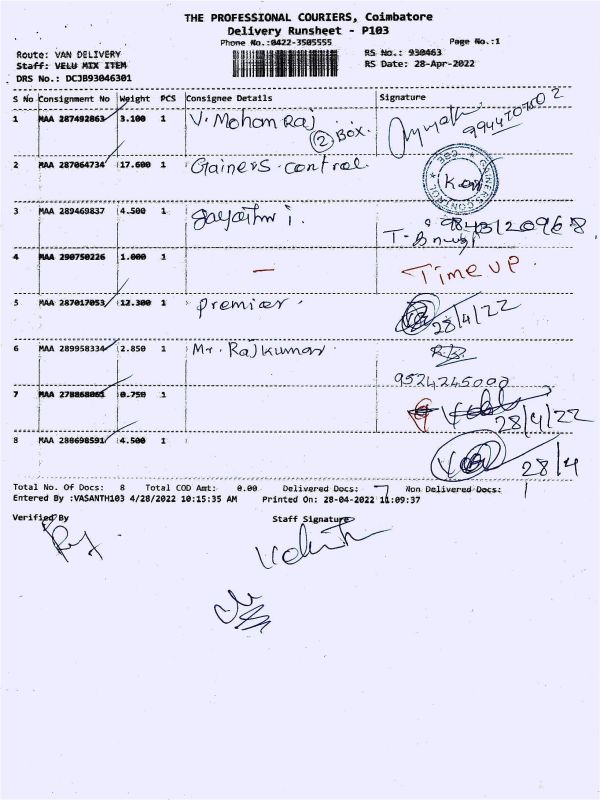 THE PROFESSIONAL COURIERS, Coimbatore
Delivery Runsheet - P103
Phone No.:0422-3505555 Page No.:1
Route: VAN DELIVERY RS No.: 930463
Staff: VELU MIX ITEM RS Date: 28-Apr-2022
DRS No.: DCJB93046301
S No Consignment No Weight PCS Consignee Details Signature
1 MAA 287492863 3.100 1 V. Mohanraj
2 Box. 9944707802
2 MAA 287064734 17.600 1 Gainers control
GAINERS CONTROL
3 MAA 289469837 4.500 1 Gayathri. 9843120968
4 MAA 290750226 1.000 1 — Time up.
5 MAA 287017053 12.300 1 premier. 28/4/22
6 MAA 289958334 2.850 1 Mr. Rajkumar
9524245000
7 MAA 278868061 0.750 1 28/4/22
8 MAA 288698591 4.500 1 28/4
Total No. Of Docs: 8 Total COD Amt: 0.00 Delivered Docs: 7 Non Delivered Docs: 1
Entered By :VASANTH103 4/28/2022 10:15:35 AM Printed On: 28-04-2022 11:09:37
Verified By Staff Signature